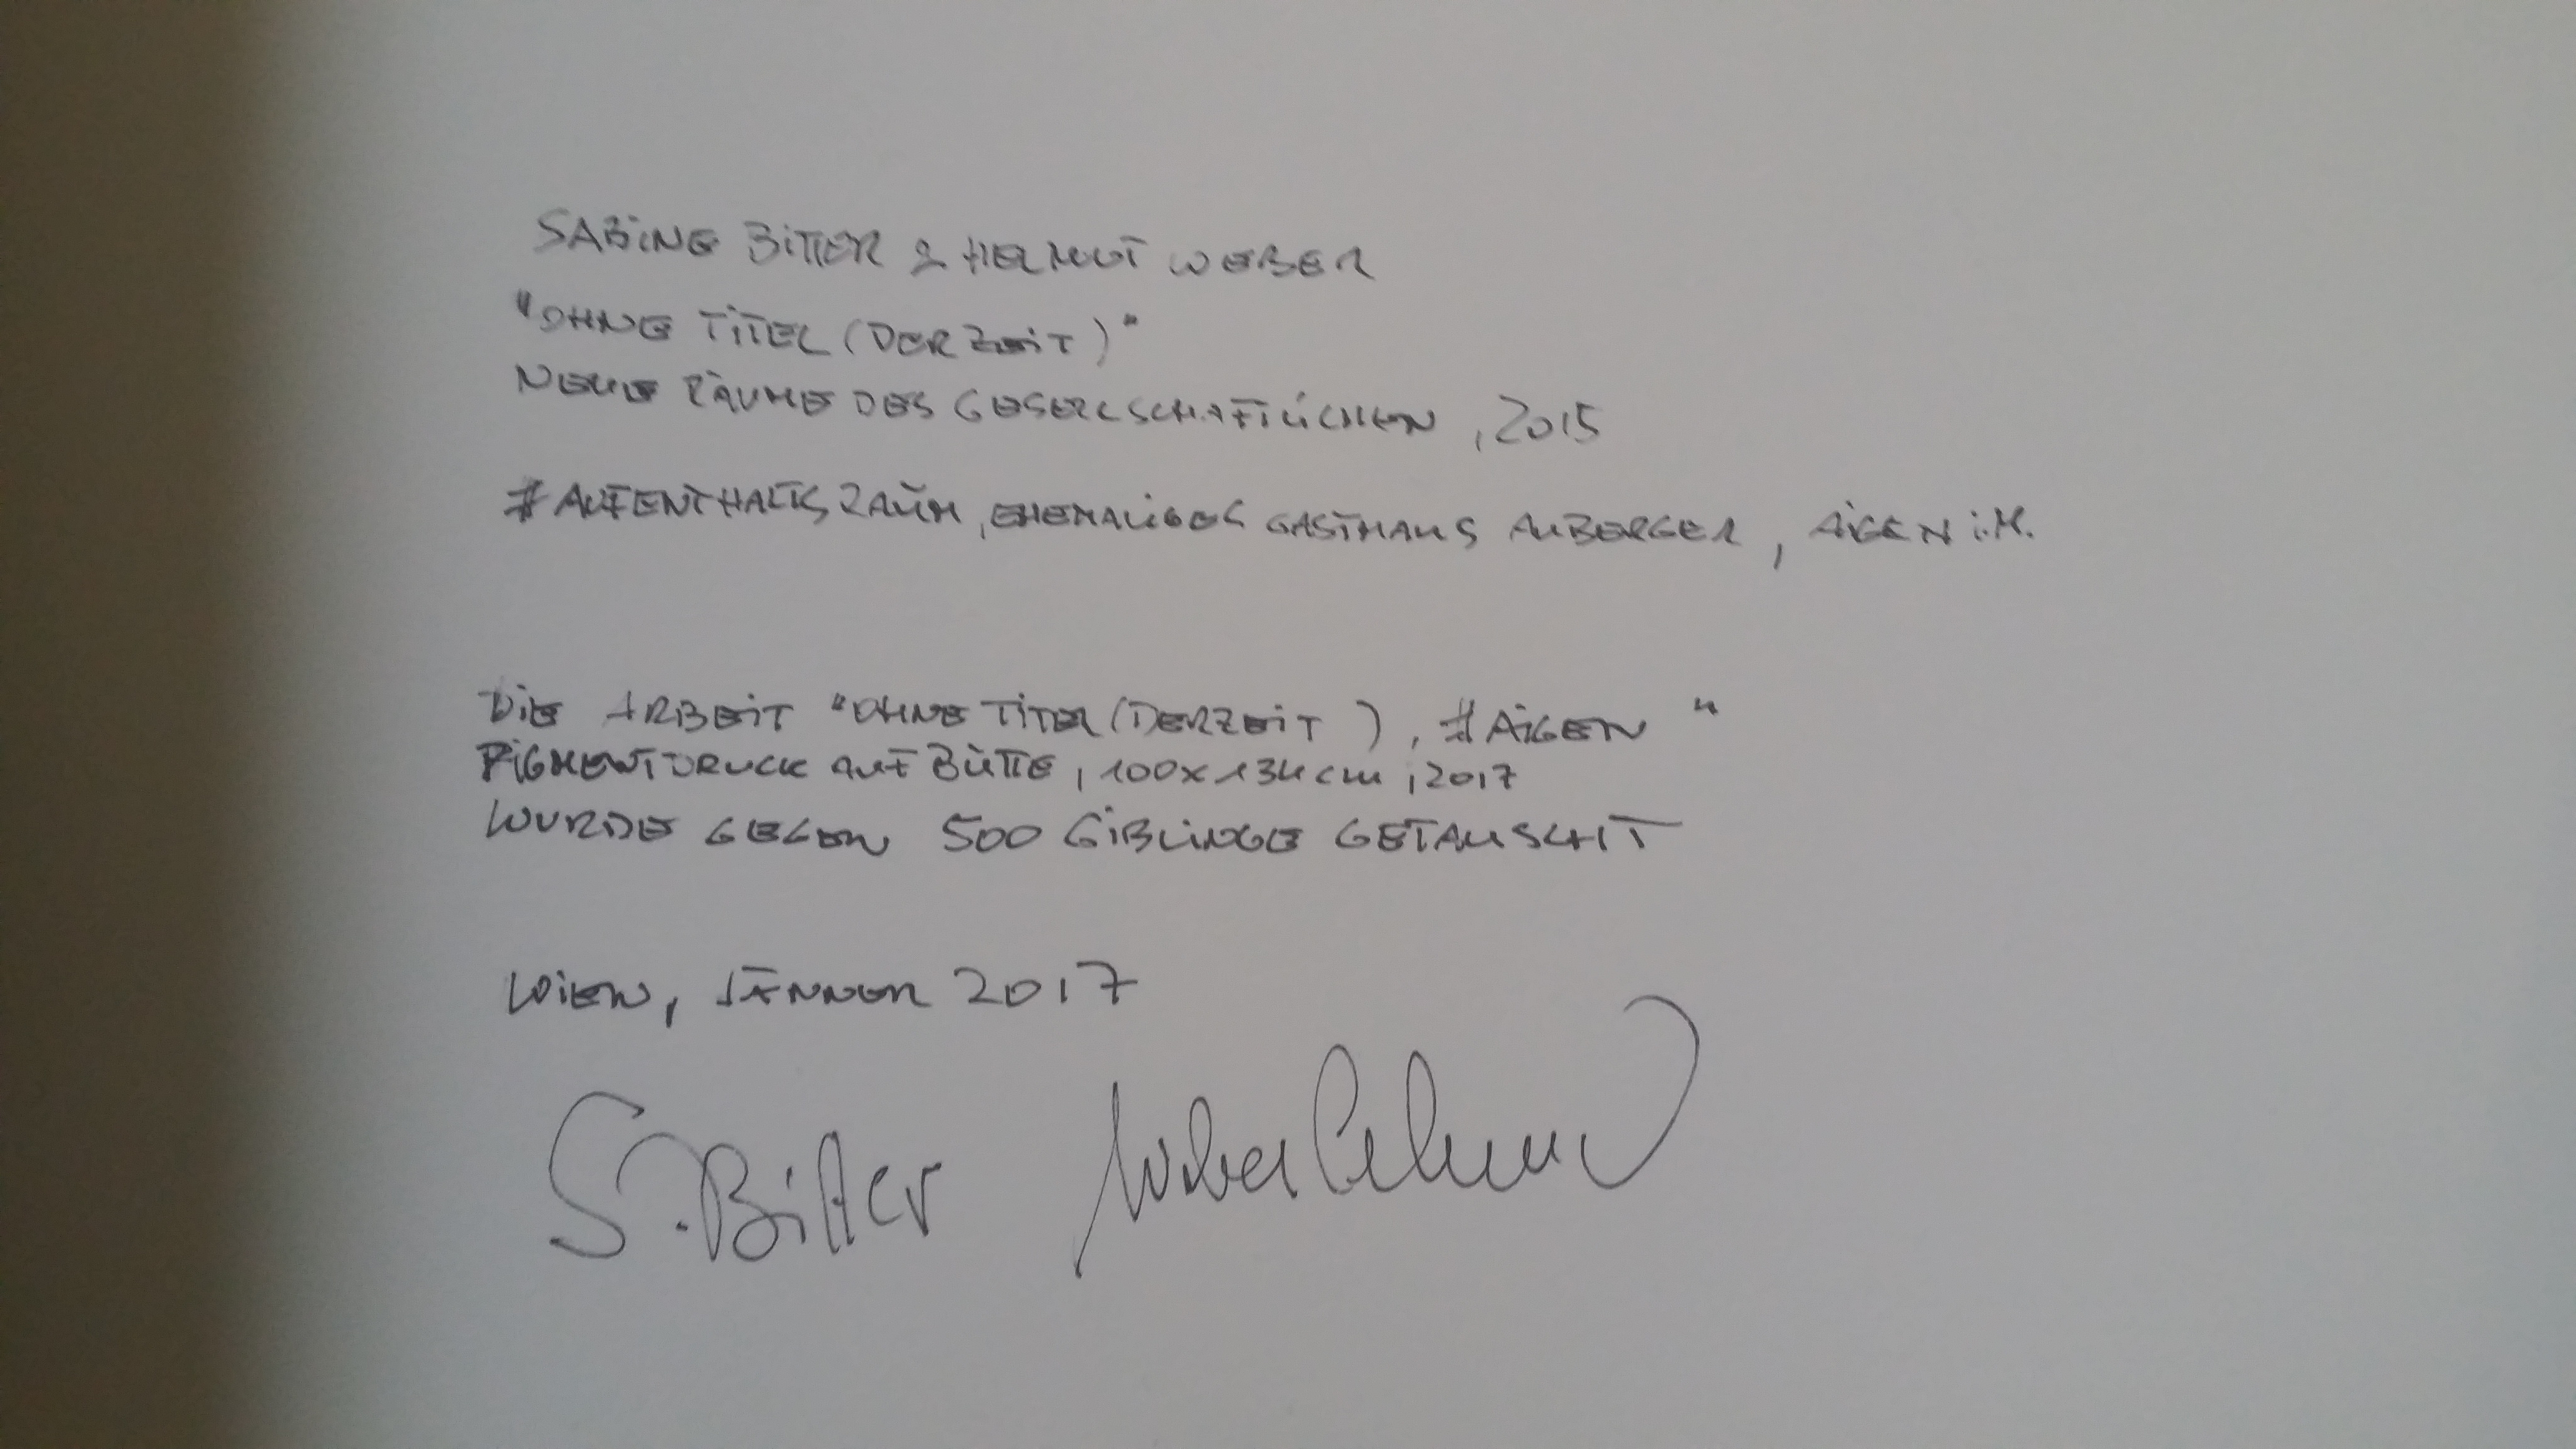 SABINE BITTER & HELMUT WEBER
"OHNE TITEL (DERZEIT)"
NEUE RÄUME DES GESELLSCHAFTLICHEN, 2015
#AUFENTHALTSRAUM, EHEMALIGES GASTHAUS AUBERGER, AIGEN i.M.
DIE ARBEIT "OHNE TITEL (DERZEIT), #AIGEN"
PIGMENTDRUCK AUF BÜTTE, 100x134cm, 2017
WURDE GEGEN 500 GIBLINGE GETAUSCHT
WIEN, JÄNNER 2017
S. Bitter Weber Helmut